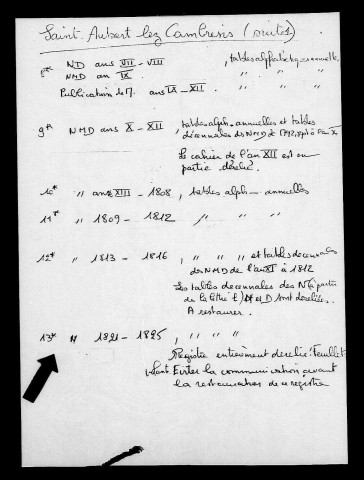 Saint-Aubert lez Cambresis (suites)
8* ND ans VII - VIII , tables alphabétiq. annuelles
NMD an IX. " " "
Publications de M. ans IX - XII. " " "
9* NMD ans X - XII , tables alph. annuelles et tables
décennales des NMD de 1792, 1793 à l'an X
Le cahier de l'an XII est en
partie derelié.
10* " ans XIII - 1808, tables alph. annuelles
11* " 1809 - 1812 " " "
12* " 1813 - 1816 , " " " et tables decennales
des NMD de l'an XI à 1812
Les tables decennales des N (à partir
de la lettre L) M et D sont dereliées.
A restaurer.
13* " 1821 - 1825 , " " " "
Registre entièrement derelié. Feuillet
volant. Eviter la communication avant
la restauration de ce registre